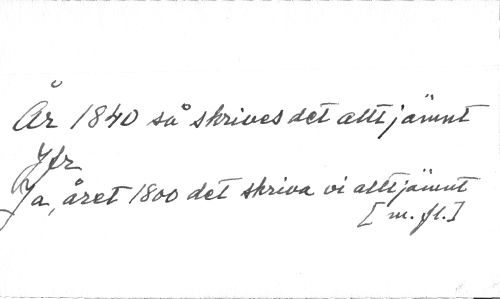 År 1840 så skrives det alltjämnt
Jfr
Ja, året 1800 det skriva vi alltjämnt
[m.fl.]